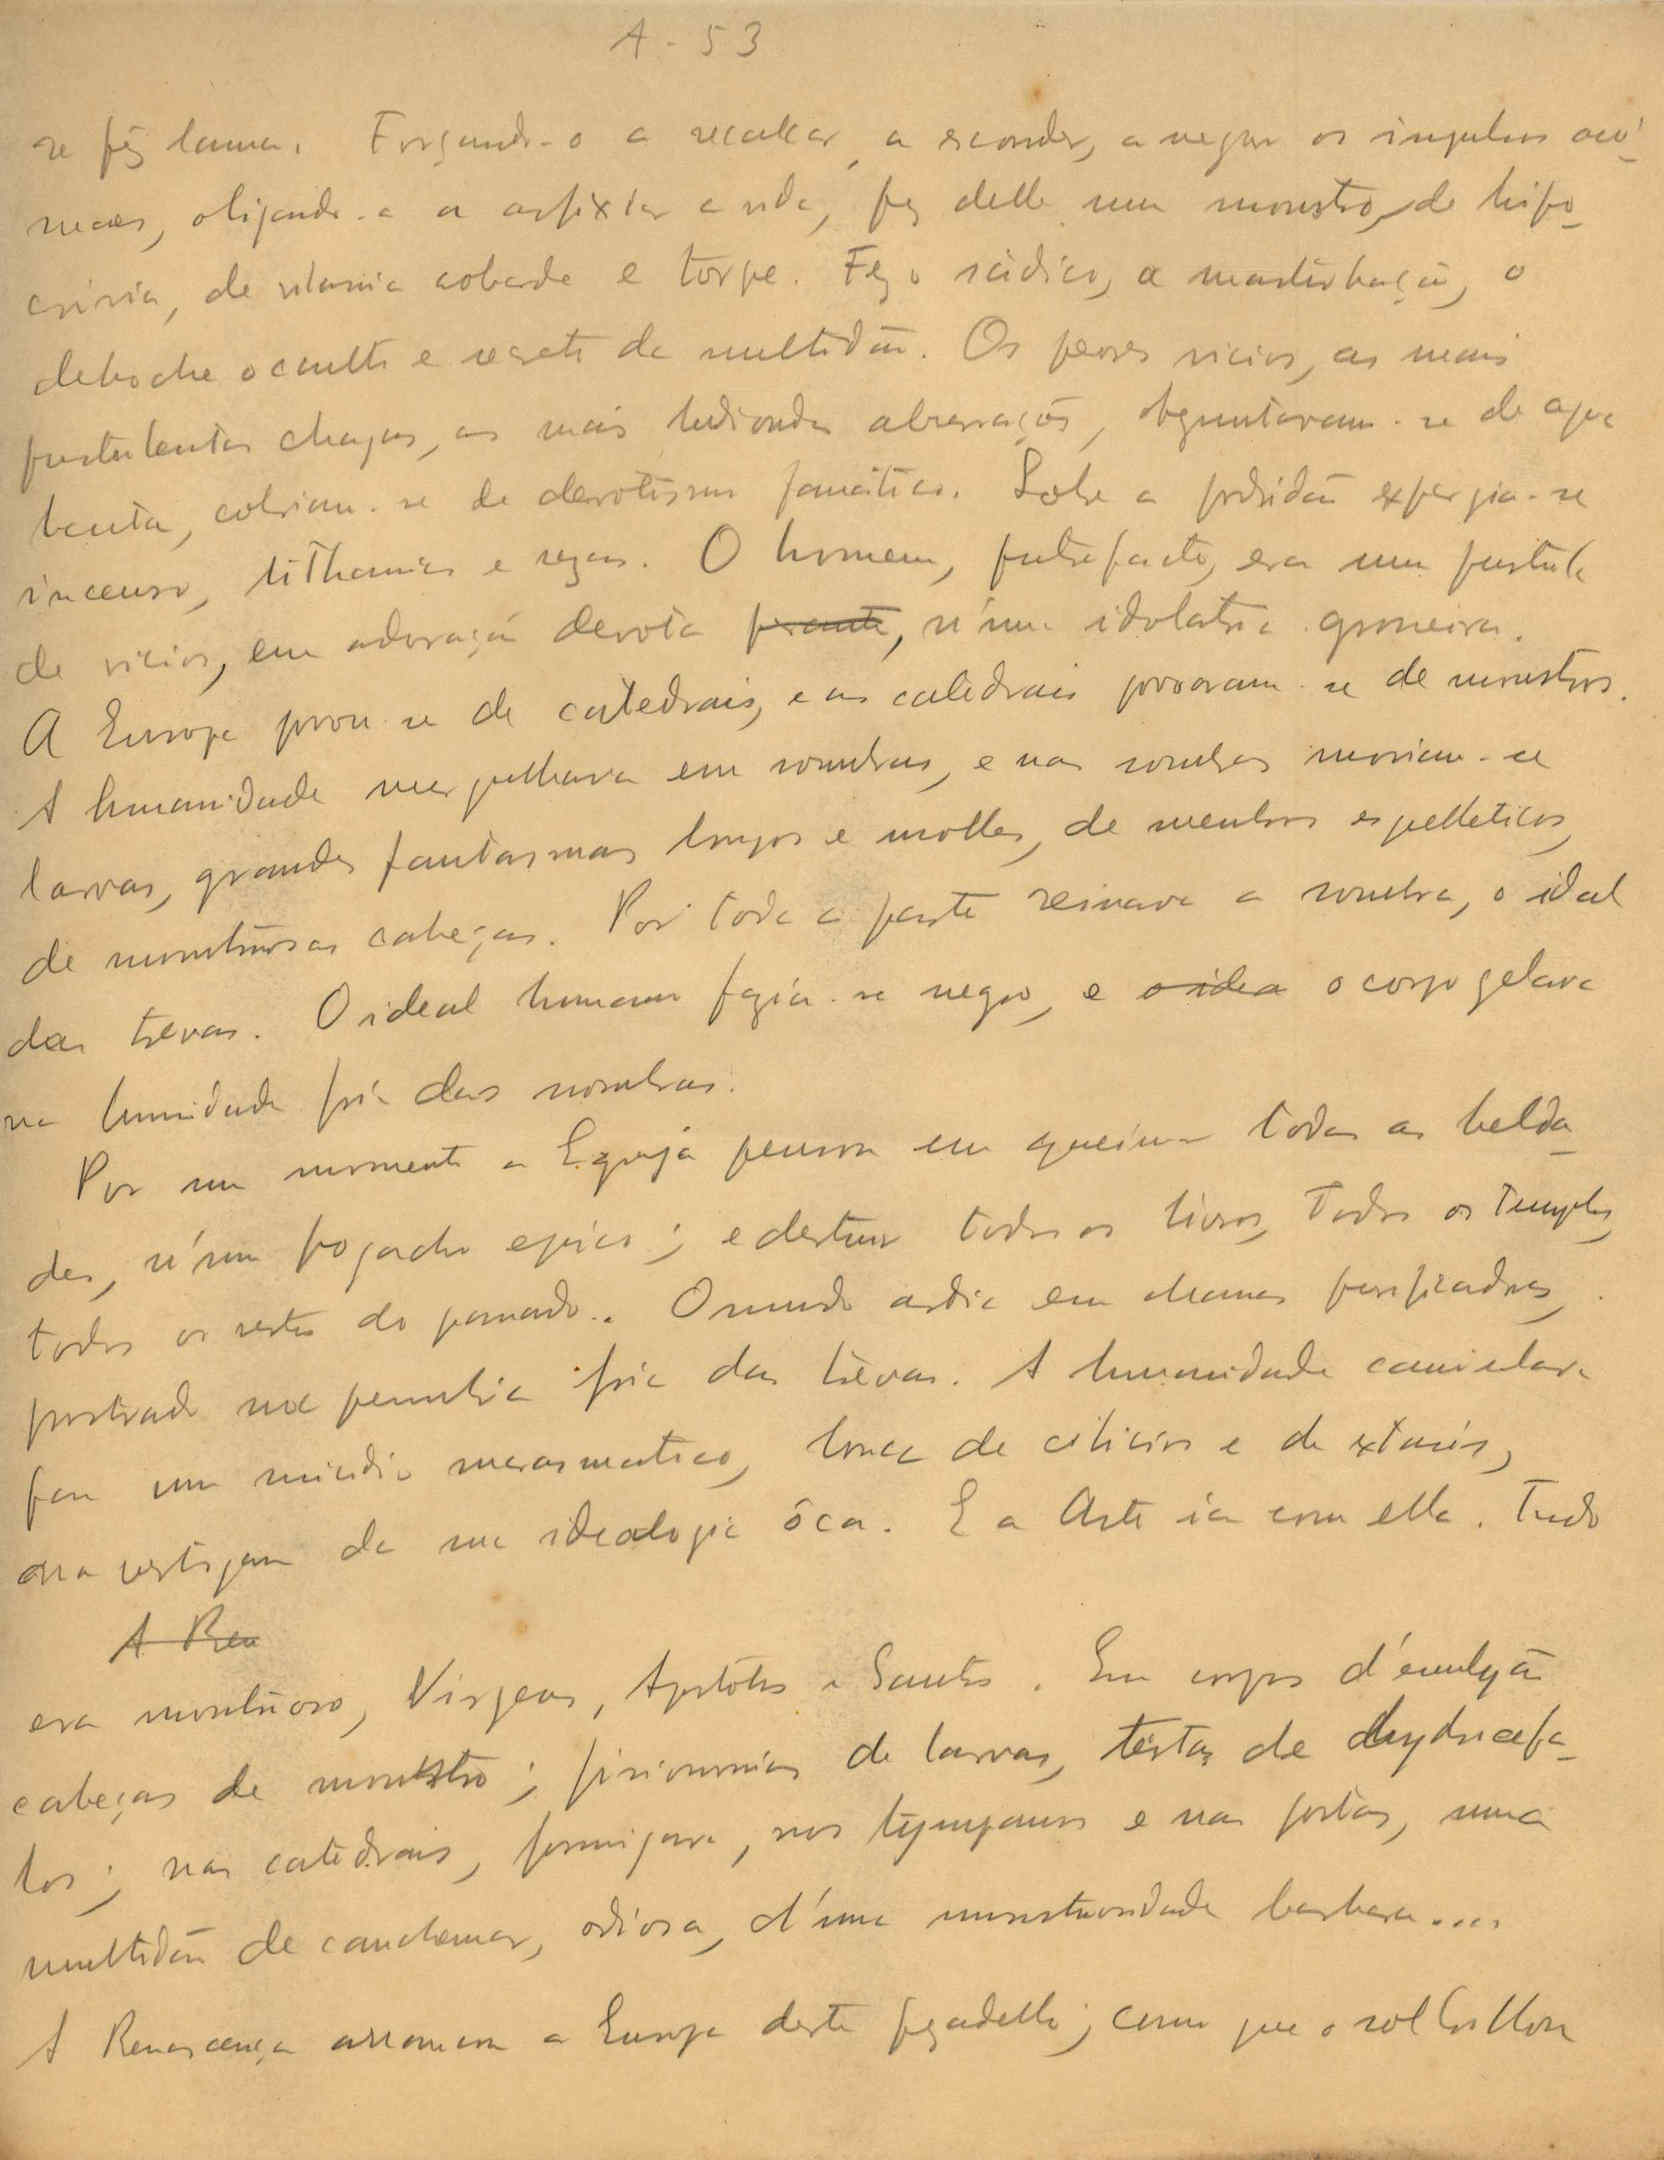 A - 53
se fez lama. Forçando-o a recalcar, a esconder, a negar os impulsos ani-
maes, obrigando-a a asfixiar a vida, fez delle um monstro de hipo-
crisia, de vilania cobarde e torpe. Fez o sádico, a masturbação, o
deboche occulto e secreto da multidão. Os peores vicios, as mais
pustulentas chagas, as mais hediondas aberrações, besuntavam-se de agua
benta, cobriam-se de devotismo fanático. Sobre a podridão expargia-se
incenso, lithanias e rezas. O homem, putrefacto, era um pustula
de vicios, em adoração devota perante, n'uma idolatria grosseira.
A Europa povou-se de catedrais, e as catedrais povoaram-se de monstros.
A humanidade mergulhava em sombras, e nas sombras moviam-se
larvas, grandes fantasmas longos e molles, de membros espelleticos,
de monstruosas cabeças. Por toda a parte reinava a sombra, o ideal
das trevas. O ideal humano fazia-se negro, e o idea o corpo gelava
na humidade fria das sombras.
Por um momento a Egreja pensou em queimar todas as belda-
des, n'um fogacho epico; e destruir todos os livros, todos os templos,
todos os restos do passado.. O mundo ardia em chamas purificadoras,
prostrado na penumbra fria das trevas. A humanidade caminhava
para um suicidio marasmatico, louca de cilicios e de extasis,
na vertigem da sua ideologia ôca. E a Arte ia com ella. Tudo
A Ren
era monstruoso, Virgens, Apostolos e Santos. Em corpos d'emulção
cabeças de monstro; fisionomias de larvas, testas de hydrocefa-
los; nas catedrais, formigava, nos tympanos e nas portas, uma
multidão de cauchemar, odiosa, d'uma monstruosidade barbara....
A Renascença arrancou a Europa deste pezadello; como que o sol